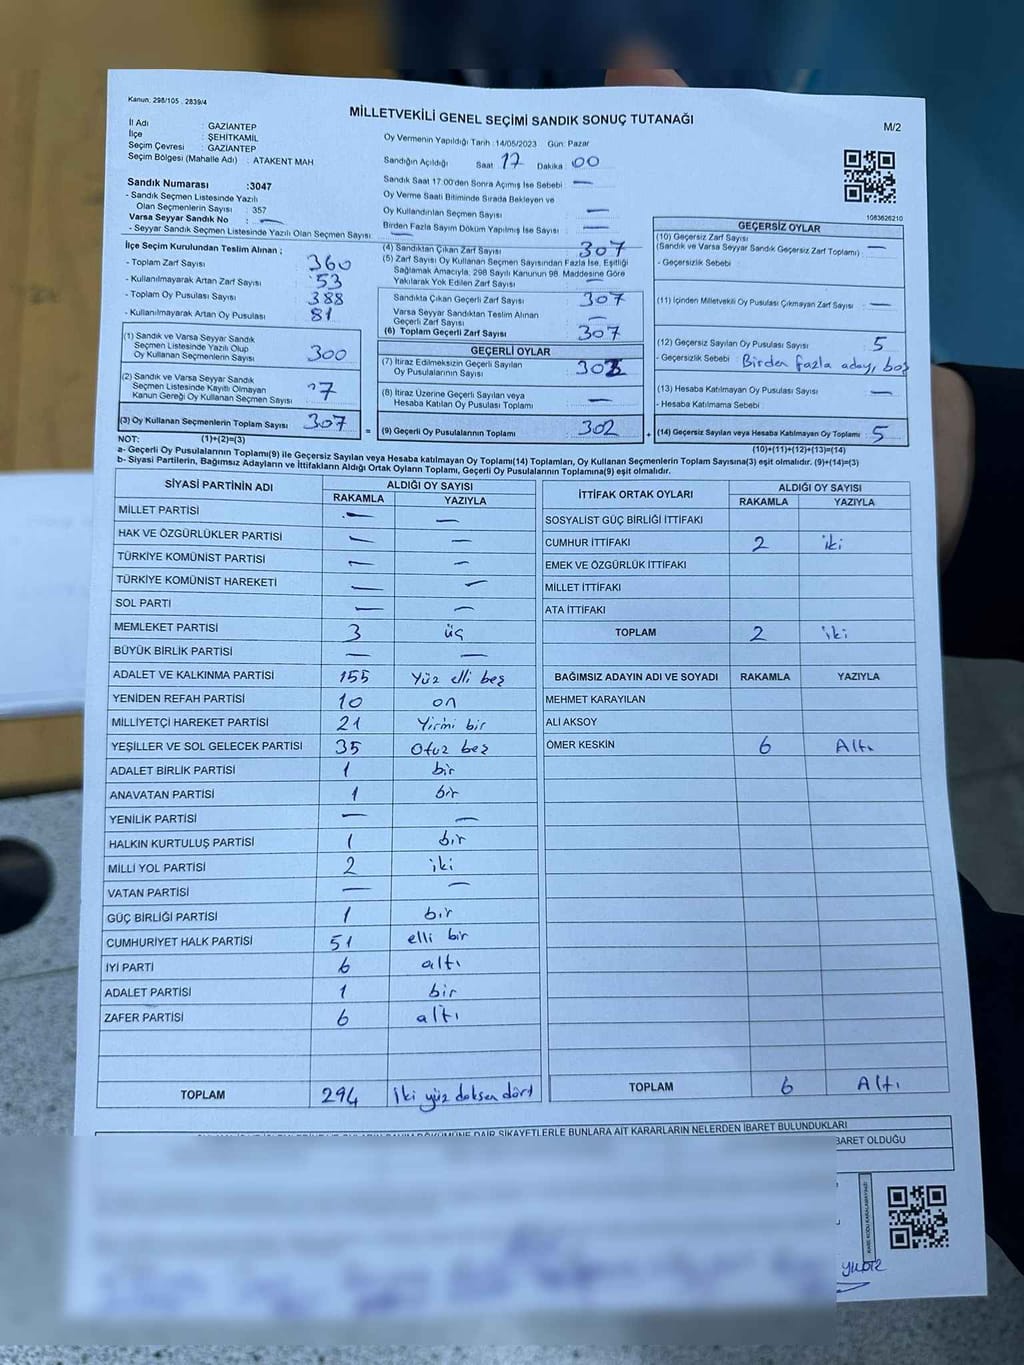 Kanun: 298/105 . 2839/4
MİLLETVEKİLİ GENEL SEÇİMİ SANDIK SONUÇ TUTANAĞI
M/2
İl Adı : GAZIANTEP
İlçe : ŞEHITKAMIL
Seçim Çevresi : GAZIANTEP
Seçim Bölgesi (Mahalle Adı) : ATAKENT MAH
Sandık Numarası :3047
- Sandık Seçmen Listesinde Yazılı
Olan Seçmenlerin Sayısı : 357
Varsa Seyyar Sandık No : —
- Seyyar Sandık Seçmen Listesinde Yazılı Olan Seçmen Sayısı: —
Oy Vermenin Yapıldığı Tarih :14/05/2023 Gün: Pazar
Sandığın Açıldığı Saat : 17 Dakika : 00
Sandık Saat 17:00'den Sonra Açımış İse Sebebi : —
Oy Verme Saati Bitiminde Sırada Bekleyen ve
Oy Kullandırılan Seçmen Sayısı : —
Birden Fazla Sayım Döküm Yapılmış İse Sayısı : —
1083626210
İlçe Seçim Kurulundan Teslim Alınan ;
- Toplam Zarf Sayısı : 360
- Kullanılmayarak Artan Zarf Sayısı : 53
- Toplam Oy Pusulası Sayısı : 388
- Kullanılmayarak Artan Oy Pusulası : 81
(1) Sandık ve Varsa Seyyar Sandık
Seçmen Listesinde Yazılı Olup
Oy Kullanan Seçmenlerin Sayısı : 300
(2) Sandık ve Varsa Seyyar Sandık
Seçmen Listesinde Kayıtlı Olmayan
Kanun Gereği Oy Kullanan Seçmen Sayısı : 7
(3) Oy Kullanan Seçmenlerin Toplam Sayısı : 307
(4) Sandıktan Çıkan Zarf Sayısı : 307
(5) Zarf Sayısı Oy Kullanan Seçmen Sayısından Fazla İse, Eşitliği
Sağlamak Amacıyla, 298 Sayılı Kanunun 98. Maddesine Göre
Yakılarak Yok Edilen Zarf Sayısı : —
Sandıkta Çıkan Geçerli Zarf Sayısı : 307
Varsa Seyyar Sandıktan Teslim Alınan
Geçerli Zarf Sayısı : —
(6) Toplam Geçerli Zarf Sayısı : 307
GEÇERLİ OYLAR
(7) İtiraz Edilmeksizin Geçerli Sayılan
Oy Pusulalarının Sayısı : 302
(8) İtiraz Üzerine Geçerli Sayılan veya
Hesaba Katılan Oy Pusulası Toplamı : —
= (9) Geçerli Oy Pusulalarının Toplamı : 302
GEÇERSİZ OYLAR
(10) Geçersiz Zarf Sayısı
(Sandık ve Varsa Seyyar Sandık Geçersiz Zarf Toplamı) : —
- Geçersizlik Sebebi :
(11) İçinden Milletvekili Oy Pusulası Çıkmayan Zarf Sayısı : —
(12) Geçersiz Sayılan Oy Pusulası Sayısı : 5
- Geçersizlik Sebebi : Birden fazla aday, boş
(13) Hesaba Katılmayan Oy Pusulası Sayısı : —
- Hesaba Katılmama Sebebi :
+ (14) Geçersiz Sayılan veya Hesaba Katılmayan Oy Toplamı : 5
NOT: (1)+(2)=(3) (10)+(11)+(12)+(13)=(14)
a- Geçerli Oy Pusulalarının Toplamı(9) ile Geçersiz Sayılan veya Hesaba katılmayan Oy Toplamı(14) Toplamları, Oy Kullanan Seçmenlerin Toplam Sayısına(3) eşit olmalıdır. (9)+(14)=(3)
b- Siyasi Partilerin, Bağımsız Adayların ve İttifakların Aldığı Ortak Oyların Toplamı, Geçerli Oy Pusulalarının Toplamına(9) eşit olmalıdır.
SİYASİ PARTİNİN ADI ALDIĞI OY SAYISI
RAKAMLA YAZIYLA
MİLLET PARTİSİ — —
HAK VE ÖZGÜRLÜKLER PARTİSİ — —
TÜRKİYE KOMÜNİST PARTİSİ — —
TÜRKİYE KOMÜNİST HAREKETİ — —
SOL PARTI — —
MEMLEKET PARTİSİ 3 üç
BÜYÜK BİRLİK PARTİSİ — —
ADALET VE KALKINMA PARTİSİ 155 Yüz elli beş
YENİDEN REFAH PARTİSİ 10 on
MİLLİYETÇİ HAREKET PARTİSİ 21 Yirmi bir
YEŞİLLER VE SOL GELECEK PARTISI 35 Otuz beş
ADALET BİRLİK PARTİSİ 1 bir
ANAVATAN PARTİSİ 1 bir
YENİLİK PARTİSİ — —
HALKIN KURTULUŞ PARTİSİ 1 bir
MİLLİ YOL PARTİSİ 2 iki
VATAN PARTİSİ — —
GÜÇ BİRLİĞİ PARTİSİ 1 bir
CUMHURİYET HALK PARTİSİ 51 elli bir
İYİ PARTİ 6 altı
ADALET PARTİSİ 1 bir
ZAFER PARTİSİ 6 altı
TOPLAM 294 İki yüz doksan dört
İTTİFAK ORTAK OYLARI ALDIĞI OY SAYISI
RAKAMLA YAZIYLA
SOSYALİST GÜÇ BİRLİĞİ İTTİFAKI
CUMHUR İTTİFAKI 2 iki
EMEK VE ÖZGÜRLÜK İTTİFAKI
MİLLET İTTİFAKI
ATA İTTİFAKI
TOPLAM 2 iki
BAĞIMSIZ ADAYIN ADI VE SOYADI RAKAMLA YAZIYLA
MEHMET KARAYILAN
ALİ AKSOY
ÖMER KESKİN 6 Altı
TOPLAM 6 Altı
DAİR ŞİKAYETLERLE BUNLARA AİT KARARLARIN NELERDEN İBARET BULUNDUKLARI
BARET OLDUĞU